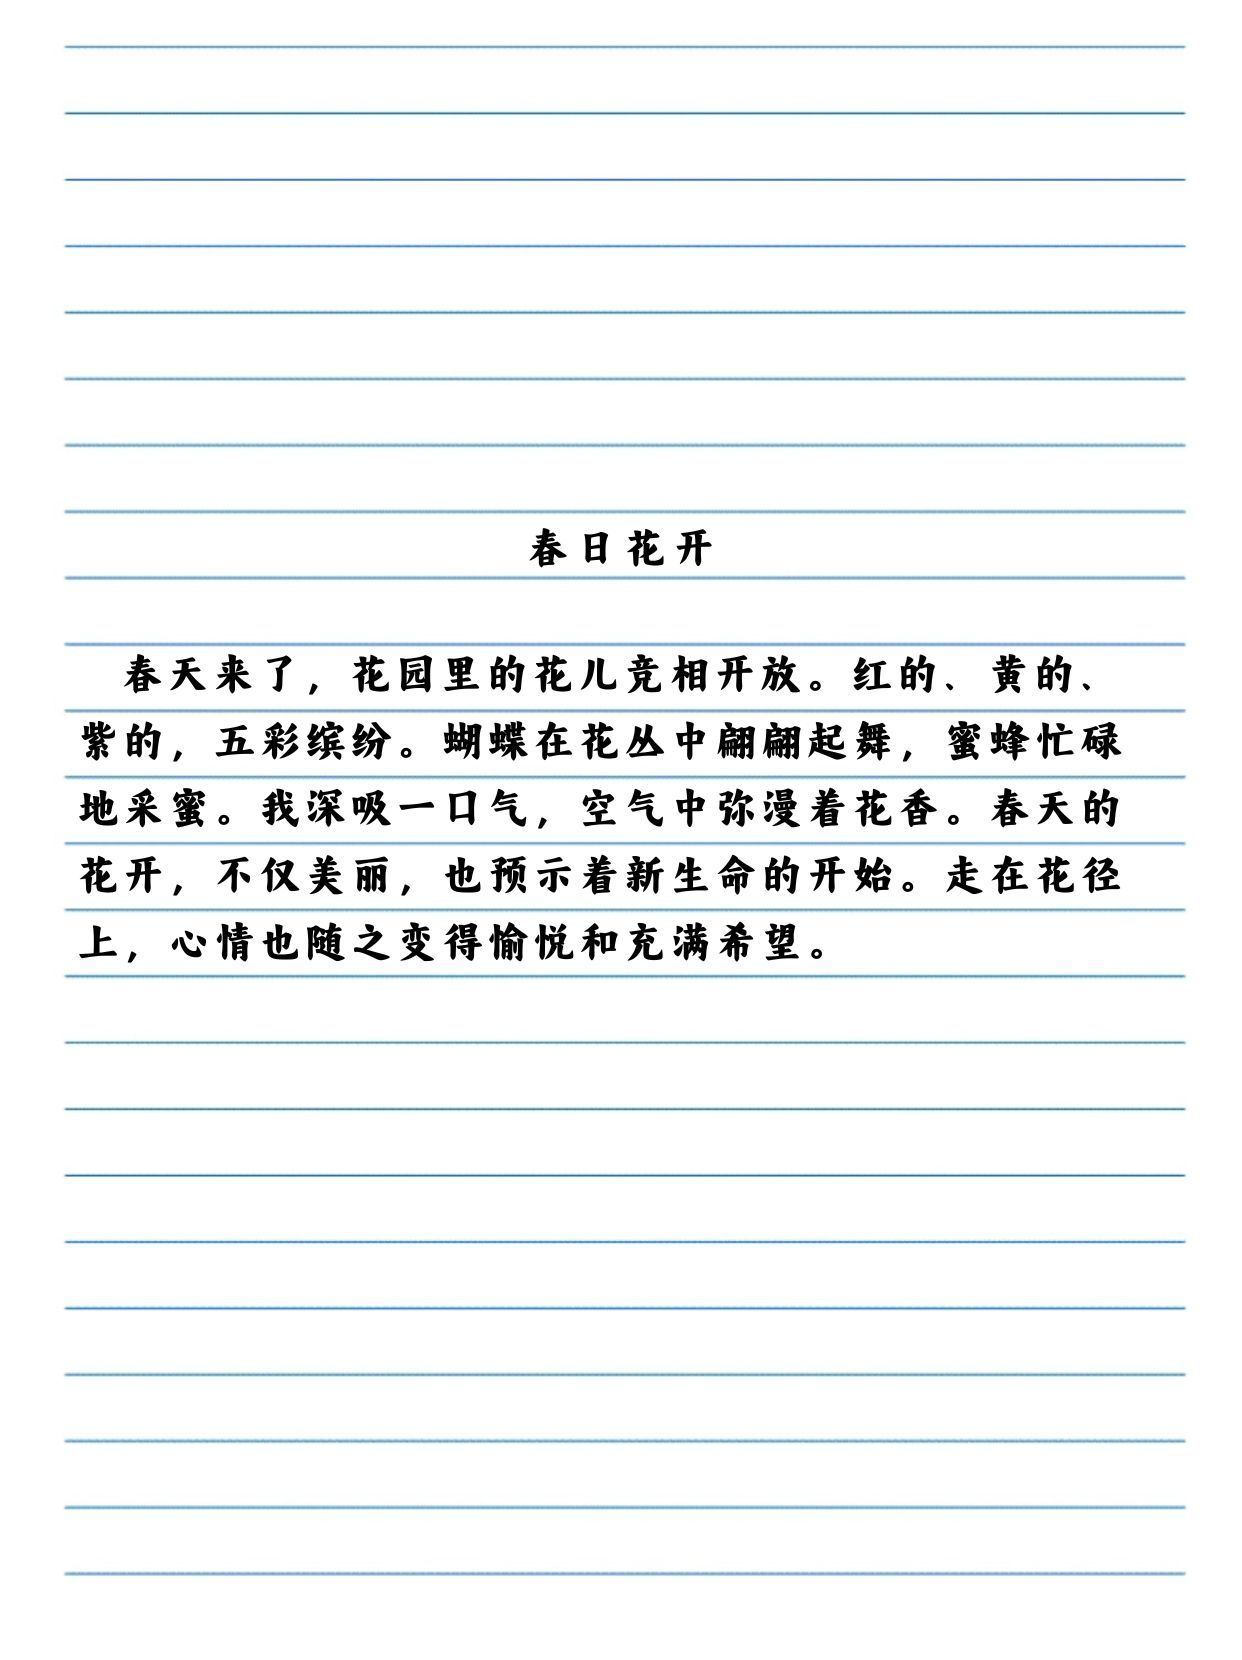 春日花开
春天来了，花园里的花儿竞相开放。红的、黄的、
紫的，五彩缤纷。蝴蝶在花丛中翩翩起舞，蜜蜂忙碌
地采蜜。我深吸一口气，空气中弥漫着花香。春天的
花开，不仅美丽，也预示着新生命的开始。走在花径
上，心情也随之变得愉悦和充满希望。